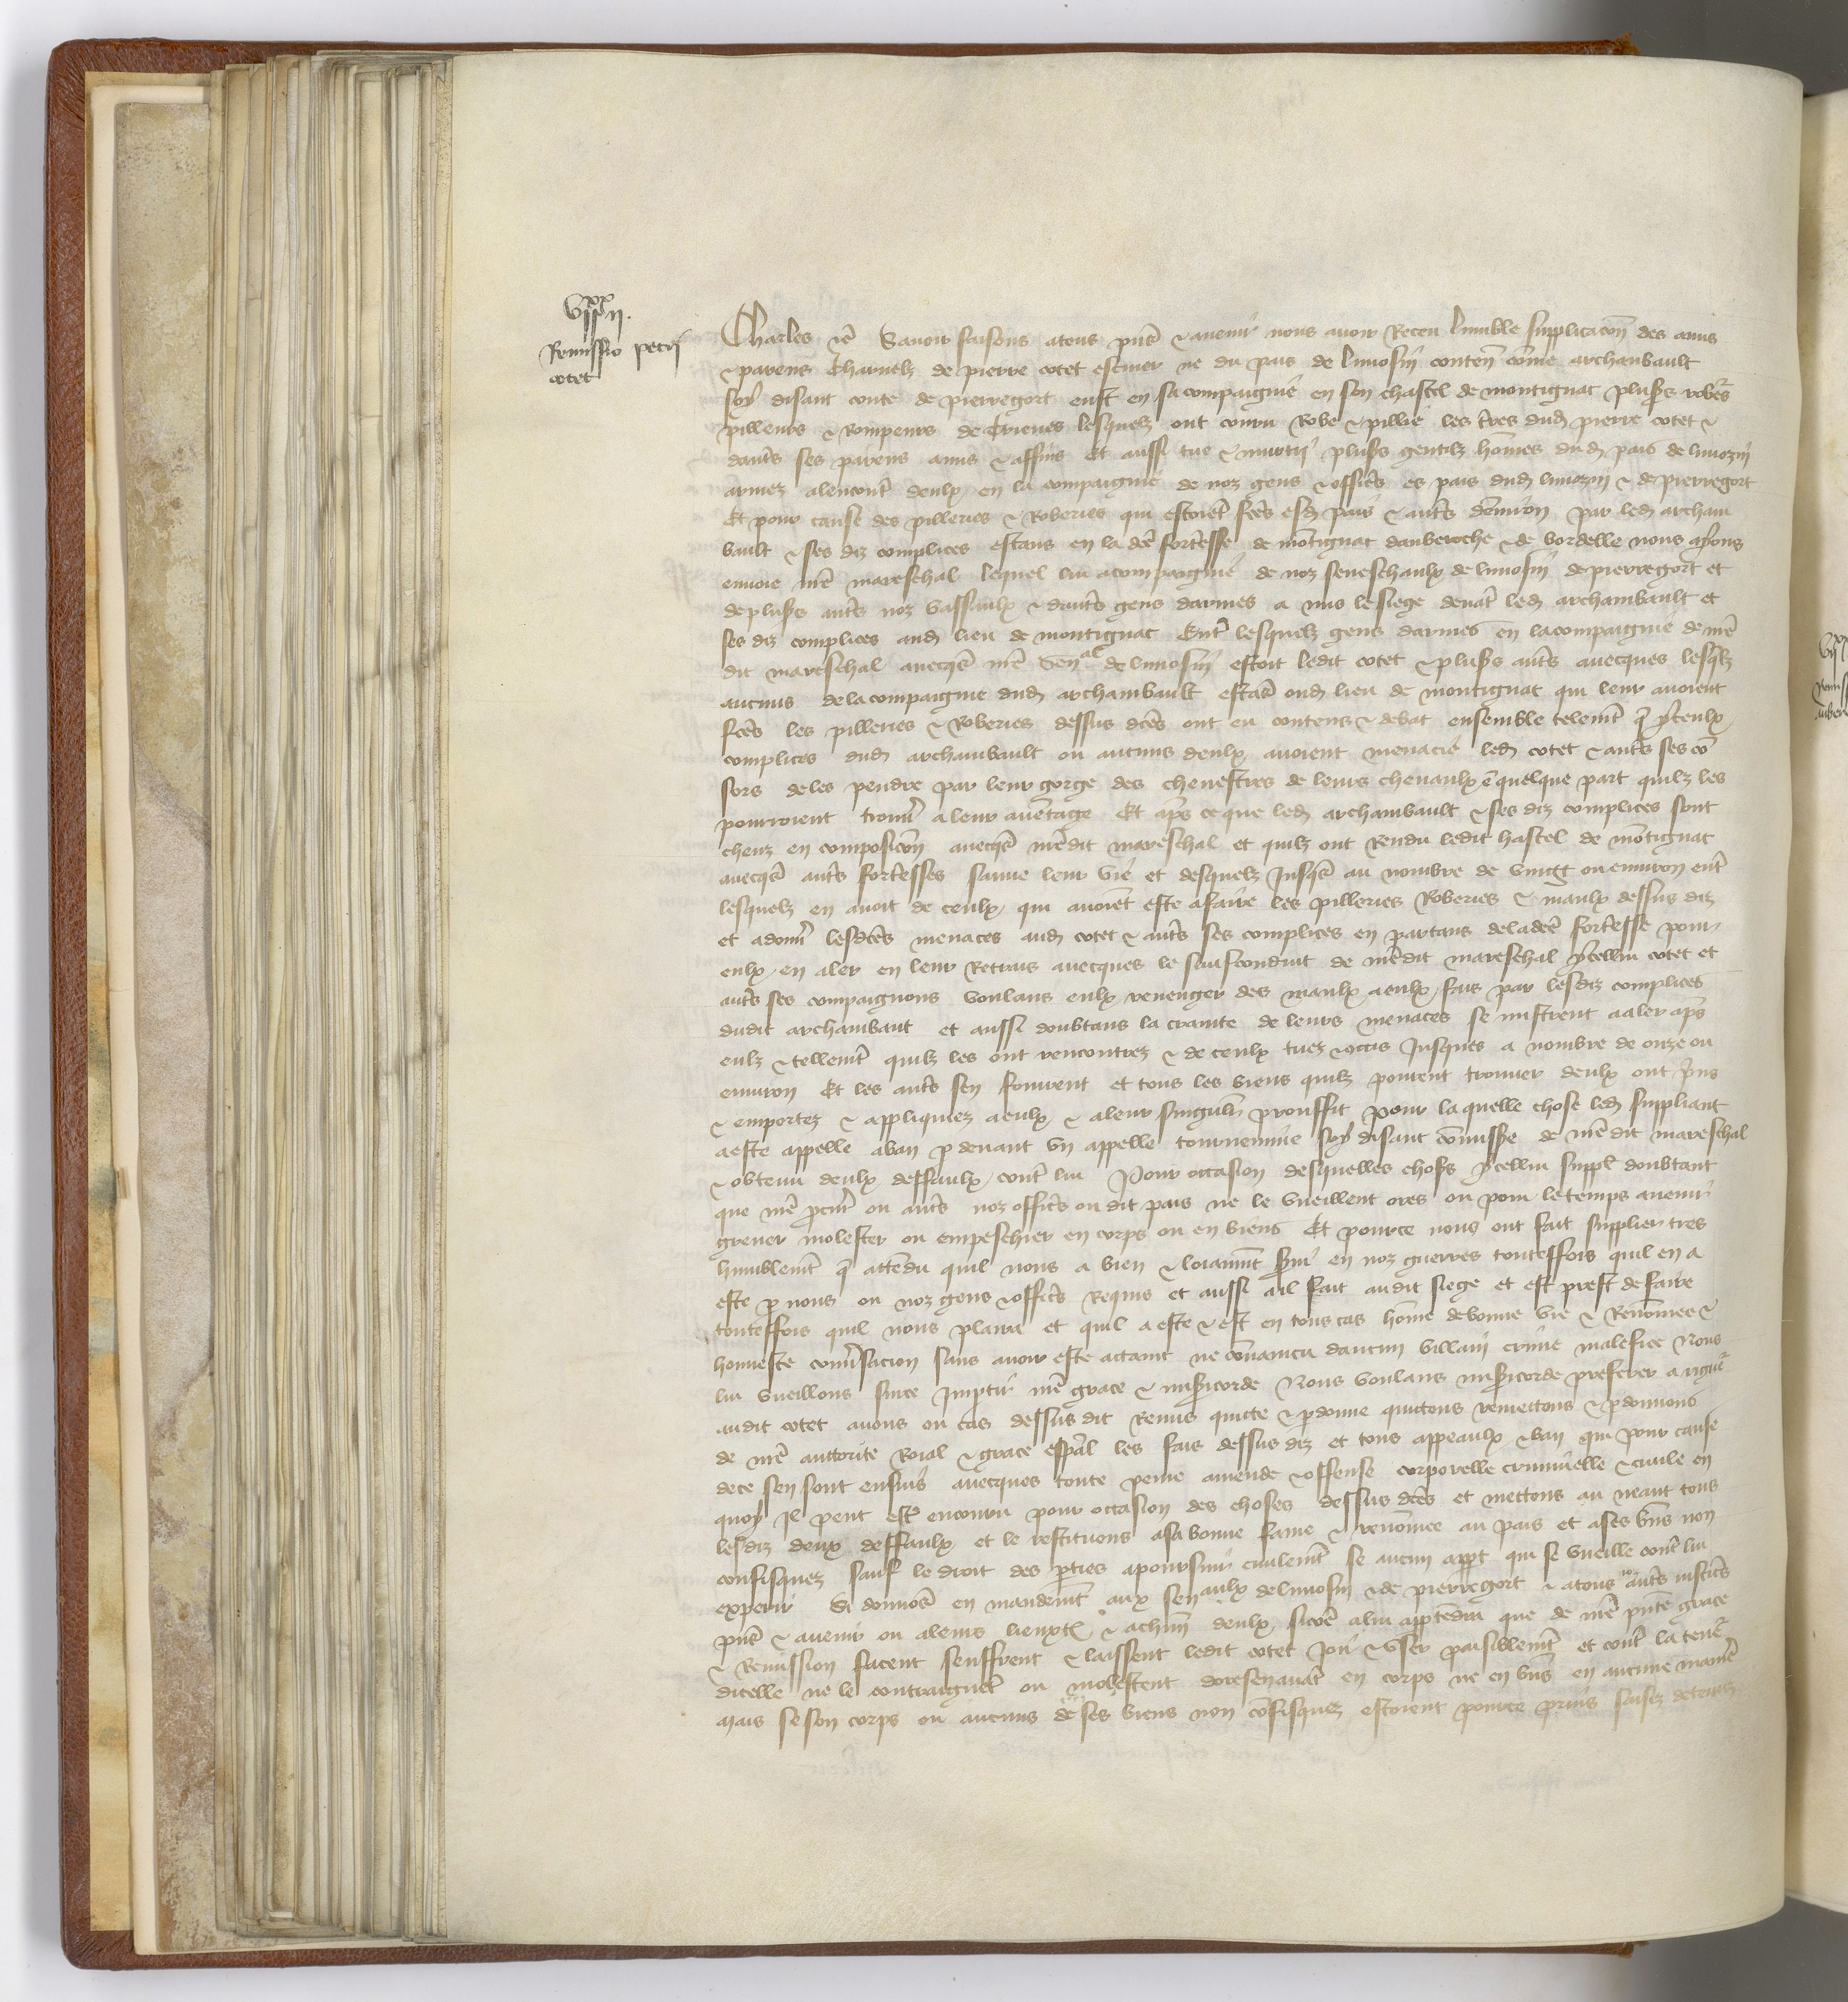 Remissio petri
cotet
Charles etc Savoir faisons a tous pñs & avenir nous avoir Receu lumble supplicacõn des amis
& parens Charnelz de pierre cotet escuier ne du pais de limosiñ conteñ cõme archanbault
soy disant conte de pierregort eust en sa compaignie en son chastel de montignac plusrs
pilleurs & Rompeurs de trieves lesquelz ont couru Robe & pillie les tres dud pierre cotet &
dauts ses parens amis & affins Et aussi tue & murtry plusrs gentilz hõmes dud pais de limoziñ
armez alencont deulx en la compaignie de noz gens & officrs es pais dud limoziñ & de pierregort
Et pour cause des pilleries & Roberies qui estoiet fctes esd pais & auts denviron par led archam
bault & ses diz complices estans en la dce fortresse de mõtignac dauberoche & de bordelle nous ayons
envoie nre mareschal lequel lui acompaignie de noz seneschaulx de limosiñ de pierregort et
de plusrs auts noz vassaulx & dauts gens darmes a mis le siege devãt led archambault et
ses diz complices aud lieu de montignac Entr lesquelz gens darmes en la compaignie de nre
dit mareschal avecqs nre señal de limosiñ estoit ledit cotet & plusrs auts avecques lesqlz
aucuns de la compaignie dud archambault estãs oud lieu de montignac qui leur avoient
fctes les pilleries & Roberies dessus dctes ont eu contens & debat ensemble telemt q yceulx
complices dud archambault ou aucuns deulx avoient menacie led cotet & auts ses cõ
sors de les pendre par leur gorge des chevestres de leurs chevaulx ẽ quelque part quilz les
pourroient trouvr a leur aventage Et aps ce que led archambault & ses diz complices sont
cheuz en composicõn avecqs nredit mareschal et quilz ont Rendu ledit hastel de mõtignac
avecqs auts fortresses sauve leur vie et desquelz jusqs au nombre de vingt ou environ entr
lesquelz en avoit de ceulx qui avoiẽt este a faire les pilleries Roberies & maulx dessus diz
et a donnr lesdctes menaces aud cotet & auts ses complices en partans de la dce fortresse pour
eulx en aler en leur Retrais avecques le saufconduit de nredit mareschal ycellui cotet et
auts ses compaignons voulans eulx revenger des maulx a eulx fais par lesdiz complices
dudit archambaut et aussi doubtans la crainte de leurs menaces se mistrent a aler aps
eulz & tellemt quilz les ont rencontrez & de ceulx tuez & occis Jusques a nombre de onze ou
environ Et les auts sen fouirent et tous les biens quilz porent trouver deulx ont prins
& emportez & appliquiez a eulx & a leur singulr prouffit Pour la quelle chose led suppliant
a este appelle a ban p devant un appelle tournemine soy disant cõmissre de nre dit mareschal
& obtenu deulx deffaulx contr lui Pour occasion desquelles choses ycellui suppl doubtant
que nre pcur ou auts noz officrs ou dit pais ne le vueillent ores ou pour le temps avenir
grever molester ou empeschier en corps ou en biens Et pource nous ont fait supplier tres
humblemt q attẽdu quil nous a bien & loiaumt servi en noz guerres touteffois quil en a
este p nous ou noz gens & officrs Requis et aussi a il fait audit siege et est prest de faire
touteffois quil nous plaira et quil a este & est en tous cas hõme de bonne vie & Renõmee &
honneste conversacion sans avoir este attaint ne convaincu daucun villaiñ crime malefice Nous
lui vueillons sur ce Impartir nre grace & misricorde Nous voulans misricorde preferer a rigur
audit cotet avons ou cas dessus dit Remis quicte & pdonne quictons remettons & pdonnons
de nre auctorite Roial & grace espal les fais dessus diz et tous appeaulx & ban qui pour cause
de ce sen sont ensuis avecques toute peine amende & offense corporelle criminelle & civile en
quoy Il peut estr encouru pour occasion des choses dessus dctes et mettons au neant tous
lesdiz deux deffaulx et le restituons a sa bonne fame & renõmee au pais et a ses bñs non
confisquez sauf le droit des pties a poursuir civilemt se aucun appt qui se vueille contr lui
experir Si donnõs en mandemt aux señaulx de limosiñ & de pierregort & a tous noz auts justicrs
pñs & avenir ou a leurs lieuxten & a chũn deulx sicõe a lui apptẽdra que de nre pñte grace
& Remission facent seuffrent & laissent ledit cotet Joir & user paisiblemt et contr la tenr
dicelle ne le contraignẽt ou molestent doresenavãt en corps ne en bñs en aucune manre
Mais se son corps ou aucuns de ses biens non cõfisquez estoient pource prins saisiz detenuz